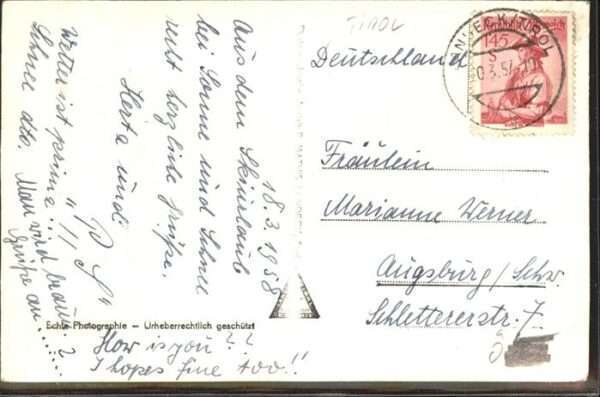 TIROL
Deutschland
145
Fräulein
Marianne Werner
Augsburg/Schw.
Schlettererstr. 7
18.3.1958
Aus dem Skiurlaub
bei Sonne und Schnee
recht herzliche Grüße.
Herta und
"P S"
Wetter ist prima!
Schnee dto. Man wird braun?
Grüße an......
Echte Photographie – Urheberrechtlich geschützt
How is you??
I hopes fine too!!